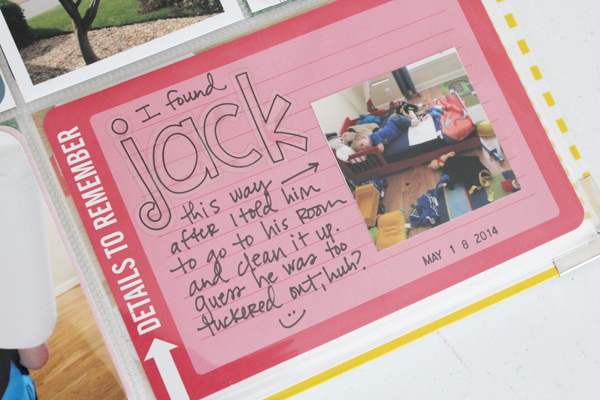 DETAILS TO REMEMBER
I found
jack
this way
after I told him
to go to his room
and clean it up.
guess he was too
tuckered out, huh?
MAY 18 2014